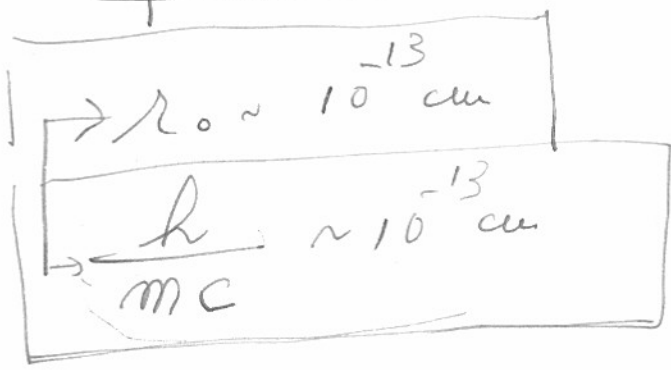 → r₀ ~ 10⁻¹³ cm
→ h/mc ~ 10⁻¹³ cm